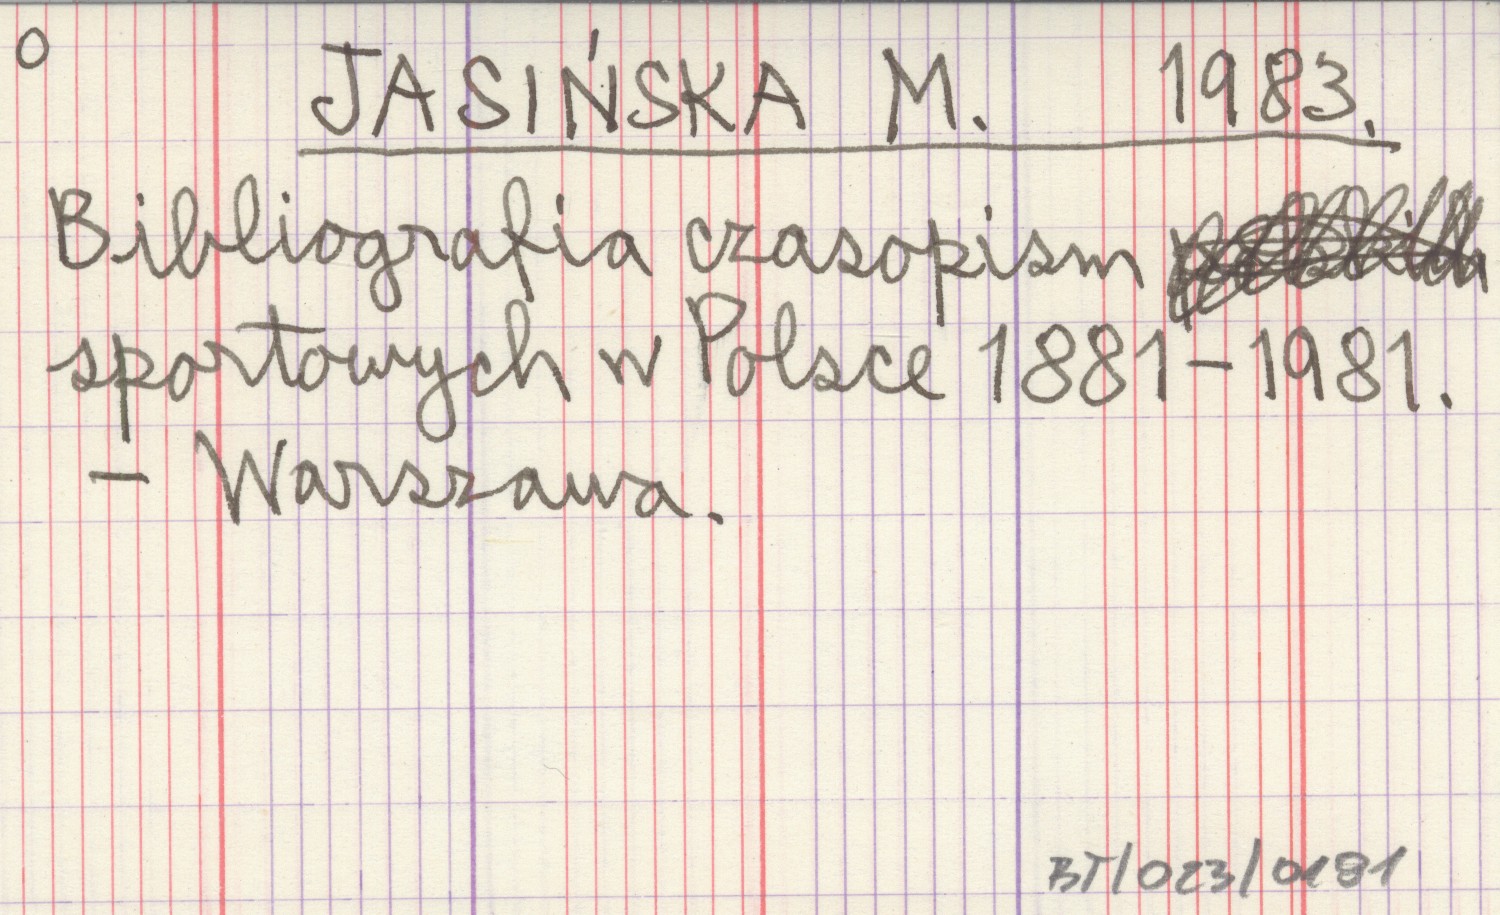 O
JASIŃSKA M. 1983.
Bibliografia czasopism
sportowych w Polsce 1881-1981.
- Warszawa.
BT/023/0181